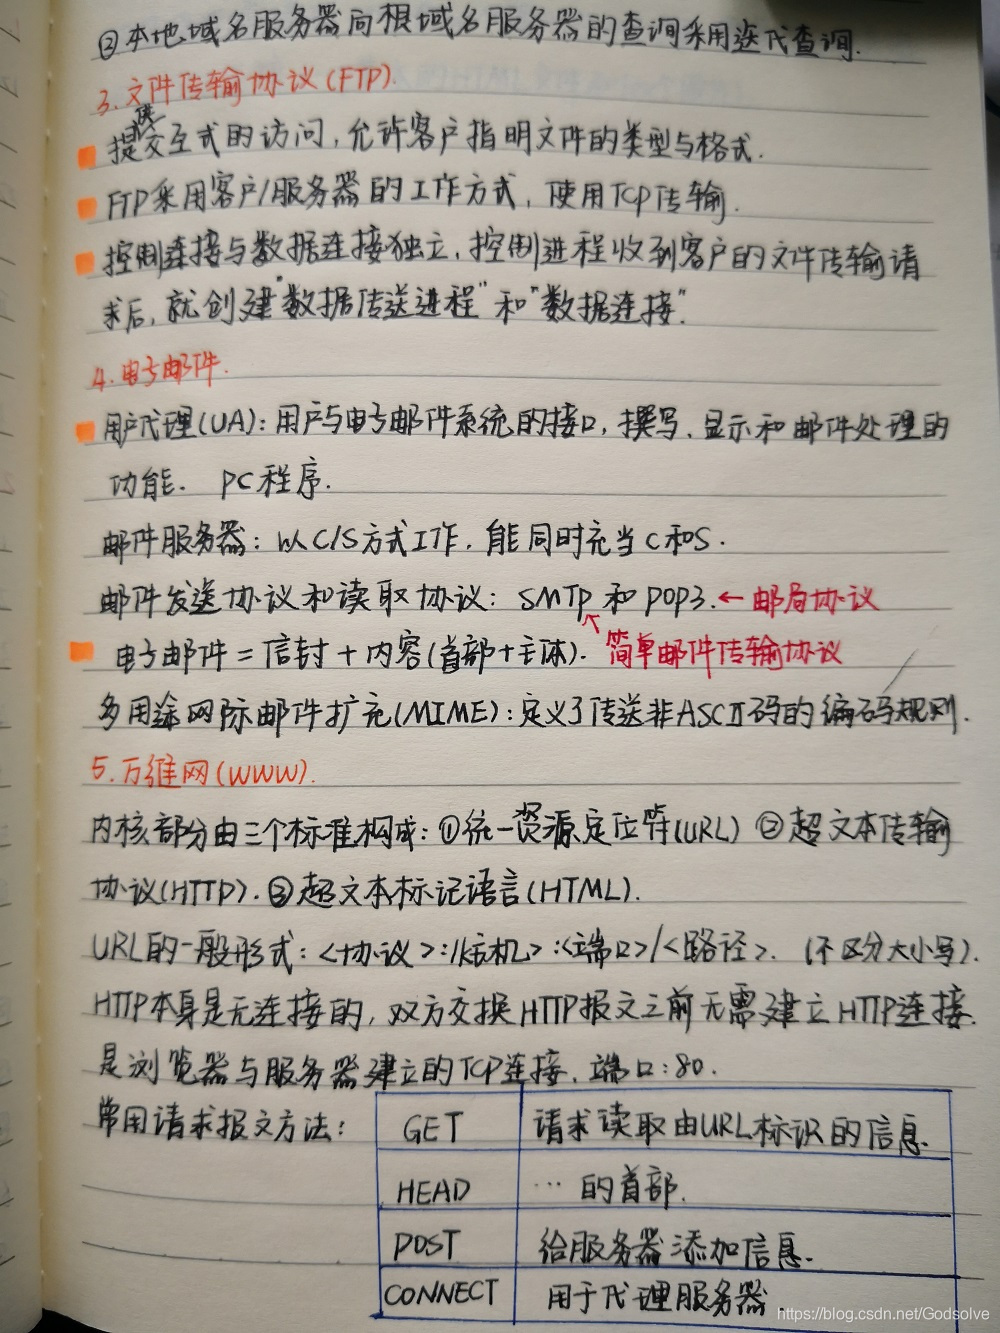 ②本地域名服务器向根域名服务器的查询采用迭代查询.
3.文件传输协议(FTP).
提供交互式的访问,允许客户指明文件的类型与格式.
FTP采用客户/服务器的工作方式,使用TCP传输.
控制连接与数据连接独立,控制进程收到客户的文件传输请
求后,就创建"数据传送进程"和"数据连接".
4.电子邮件.
用户代理(UA):用户与电子邮件系统的接口,撰写、显示和邮件处理的
功能. PC程序.
邮件服务器:以C/S方式工作,能同时充当C和S.
邮件发送协议和读取协议:SMTP和POP3.←邮局协议
电子邮件=信封+内容(首部+主体). 简单邮件传输协议
多用途网际邮件扩充(MIME):定义了传送非ASCII码的编码规则.
5.万维网(WWW).
内核部分由三个标准构成:①统一资源定位符(URL) ②超文本传输
协议(HTTP).③超文本标记语言(HTML).
URL的一般形式:<协议>://<主机>:<端口>/<路径>. (不区分大小写).
HTTP本身是无连接的,双方交换HTTP报文之前无需建立HTTP连接.
是浏览器与服务器建立的TCP连接.端口:80.
常用请求报文方法:
GET 请求读取由URL标识的信息.
HEAD …的首部.
POST 给服务器添加信息.
CONNECT 用于代理服务器.
https://blog.csdn.net/Godsolve